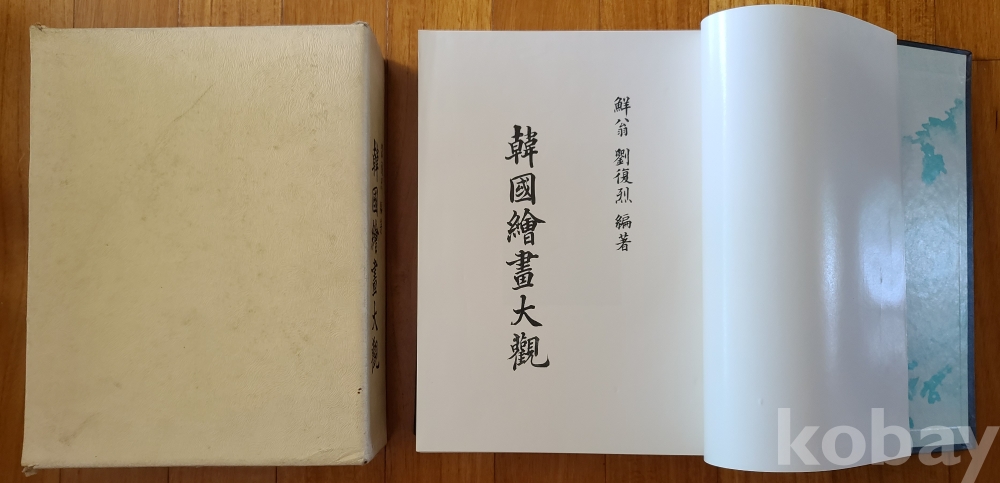 韓國繪畫大觀
鮮翁 劉復烈 編著
韓國繪畫大觀
kobay